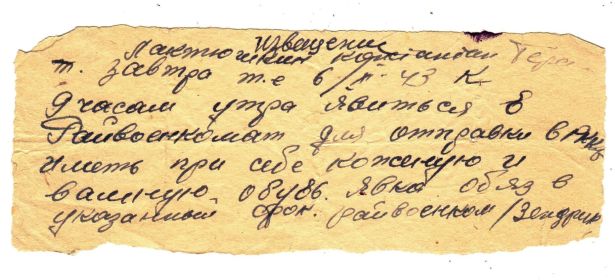 Извещение
т. Лактюшкин Констант Гера
Завтра т.е 6/II-43 К
9 часам утра явиться в
Райвоенкомат для отправки в РККА
иметь при себе кожаную и
валяную обувь. Явка обяз в
указанный срок. райвоенком /Зендрик